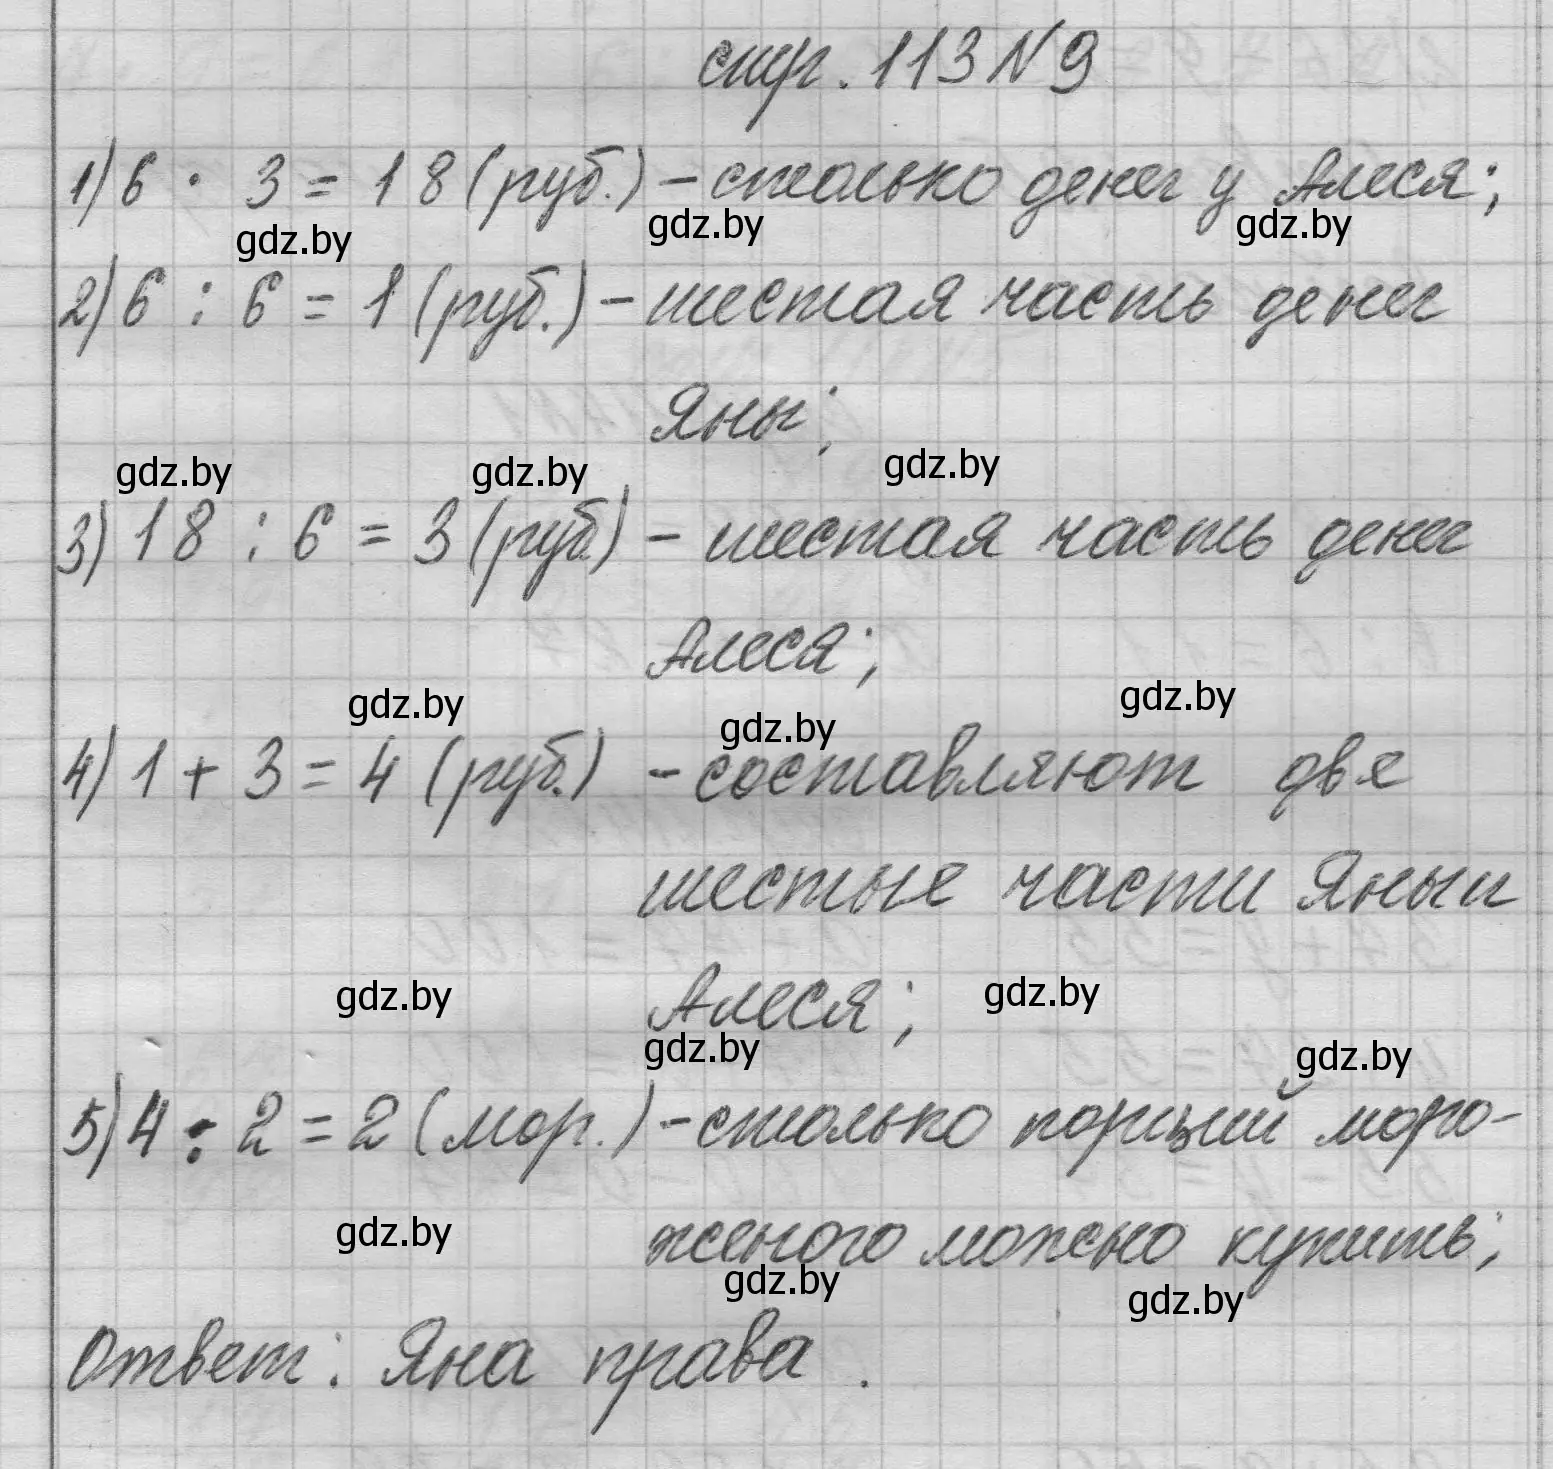 стр. 113 N 9
1) 6 · 3 = 18 (руб.) - столько денег у Алеся;
gdz.by gdz.by gdz.by
2) 6 : 6 = 1 (руб.) - шестая часть денег
Яны;
gdz.by gdz.by gdz.by
3) 18 : 6 = 3 (руб.) - шестая часть денег
Алеся;
gdz.by gdz.by gdz.by
4) 1 + 3 = 4 (руб.) - составляют две
шестые части Яны и
gdz.by Алеся; gdz.by
gdz.by gdz.by
5) 4 : 2 = 2 (мор.) - столько порций моро-
gdz.by женого можно купить;
gdz.by gdz.by
Ответ: Яна права.